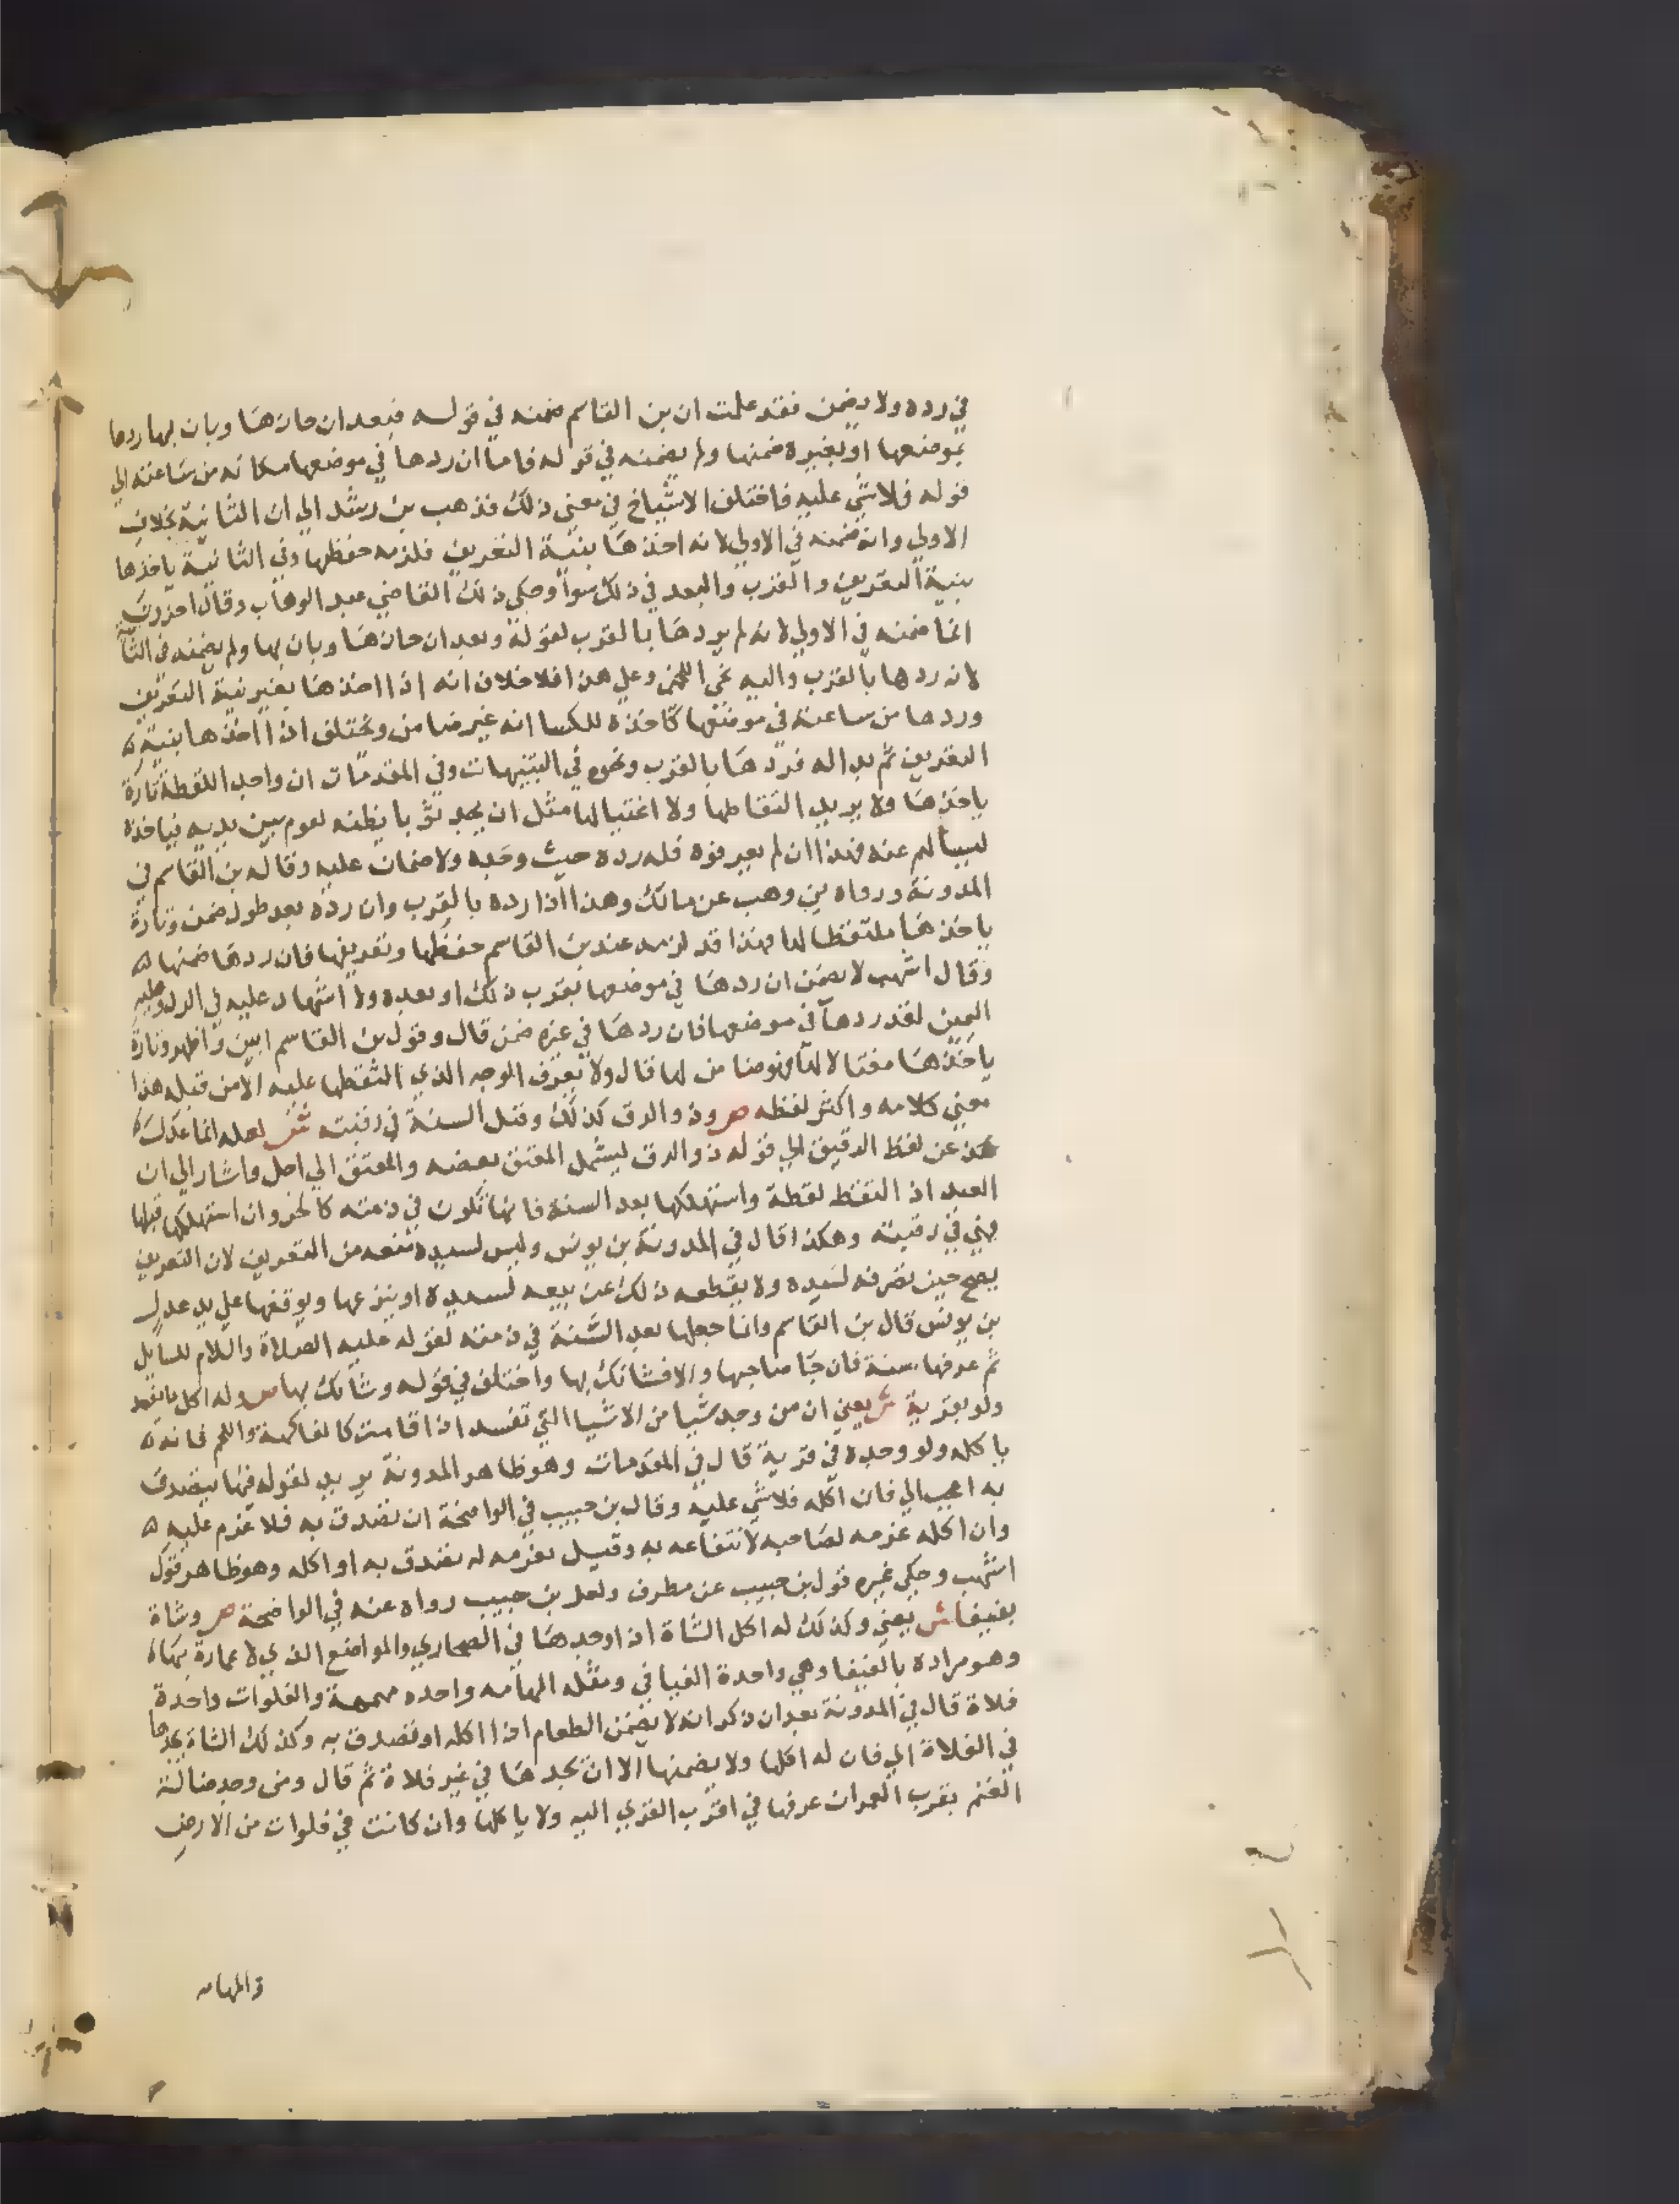 في رده ولا يضمن فقد علمت ان بن القاسم ضمنه في قوله فبعد ان حازها وبان بها ردها
بموضعها او بغيره ضمنها ولم يضمنه في قوله فاما ان ردها في موضعها مكانه من ساعته الي
قوله فلا شي عليه فاختلف الاشياخ في معني ذلك فذهب بن رشد الي ان الثانية بخلاف
الاولي وانه ضمنه في الاولي لانه اخذها بنية التعريف فلزمه حفظها وفي الثانية ياخذها
بنية التعريف والقرب والبعد في ذلك سوا وحكي ذلك القاضي عبد الوهاب وقال اخرون
انما ضمنه في الاولي لانه لم يردها بالقرب لقوله وبعد ان حازها وبان بها ولم يضمنه في الثانية
لانه ردها بالقرب واليه نحي اللخمي وعلي هذا فلا خلاف انه اذا اخذها بغير نية التعريف
وردها من ساعته في موضعها كاخذه للكسا انه غير ضامن ويختلف اذا اخذها بنية
التعريف ثم بدا له فردها بالقرب ونحوه في التنبيهات وفي المقدمات ان واجد اللقطة تارة
ياخذها ولا يريد التقاطها ولا اغتيالها مثل ان يجد ثوبا يظنه لقوم بين يديه فياخذه
ليسالهم عنه فهذا ان لم يعرفوه فله رده حيث وجده ولا ضمان عليه وقاله بن القاسم في
المدونة ورواه بن وهب عن مالك وهذا اذا رده بالقرب وان رده بعد طول ضمن وتارة
ياخذها ملتقطا لها فهذا قد لزمه عند بن القاسم حفظها وتعريفها فان ردها ضمنها
وقال اشهب لا يضمن ان ردها في موضعها بقرب ذلك او بعده ولا اشهاد عليه في الرد وعليه
اليمين لقد ردها في موضعها فان ردها في غيره ضمن قال وقول بن القاسم ابين واظهر وتارة
ياخذها مغتالا لها فهو ضامن لها قال ولا يعرف الوجه الذي التقطها عليه الا من قبله هذا
معني كلامه واكثر لفظه ص وذو الرق كذلك وقبل السنة في رقبته ش لعله انما عدل
عن لفظ الرقيق الي قوله ذو الرق ليشمل المعتق بعضه والمعتق الي اجل واشار الي ان
العبد اذا التقط لقطة واستهلكها بعد السنة فانها تكون في ذمته كالحر وان استهلكها قبلها
فهي في رقبته وهكذا قال في المدونة بن يونس وليس لسيده منعه من التعريف لان التعريف
يصح حين تصرفه لسيده ولا يقطعه ذلك عن بيعه لسيده او ينزعها ويوقفها علي يد عدل
بن يونس قال بن القاسم وانما جعلها بعد السنة في ذمته لقوله عليه الصلاة والسلام للسايل
ثم عرفها سنة فان جا صاحبها والا فشانك بها واختلف في قوله وشانك بها ص وله اكل ما يفسد
ولو بقرية ش يعني ان من وجد شيا من الاشيا التي تفسد اذا اقامت كالفاكهة واللحم فانه
ياكله ولو وجده في قرية قال في المقدمات وهو ظاهر المدونة يريد لقوله فيها يتصدق
به اعجب الي فان اكله فلا شي عليه وقال بن حبيب في الواضحة ان تصدق به فلا غرم عليه
وان اكله غرمه لصاحبه لانتفاعه به وقيل يغرمه له تصدق به او اكله وهو ظاهر قول
اشهب وحكي غيره قول بن حبيب عن مطرف ولعل بن حبيب رواه عنه في الواضحة ص وشاة
بفيفا ش يعني وكذلك له اكل الشاة اذا وجدها في الصحاري والمواضع الذي لا عمارة بها
وهو مراده بالفيفا وهي واحدة الفيافي ومثله المهامه واحده مهمهة والفلوات واحدة
فلاة قال في المدونة بعد ان ذكر انه لا يضمن الطعام اذا اكله او تصدق به وكذلك الشاة يجدها
في الفلاة الي فان له اكلها ولا يضمنها الا ان يجدها في غير فلاة ثم قال ومن وجد ضالة
الغنم بقرب العمران عرفها في اقرب القري اليه ولا ياكلها وان كانت في فلوات من الارض
والمهامه